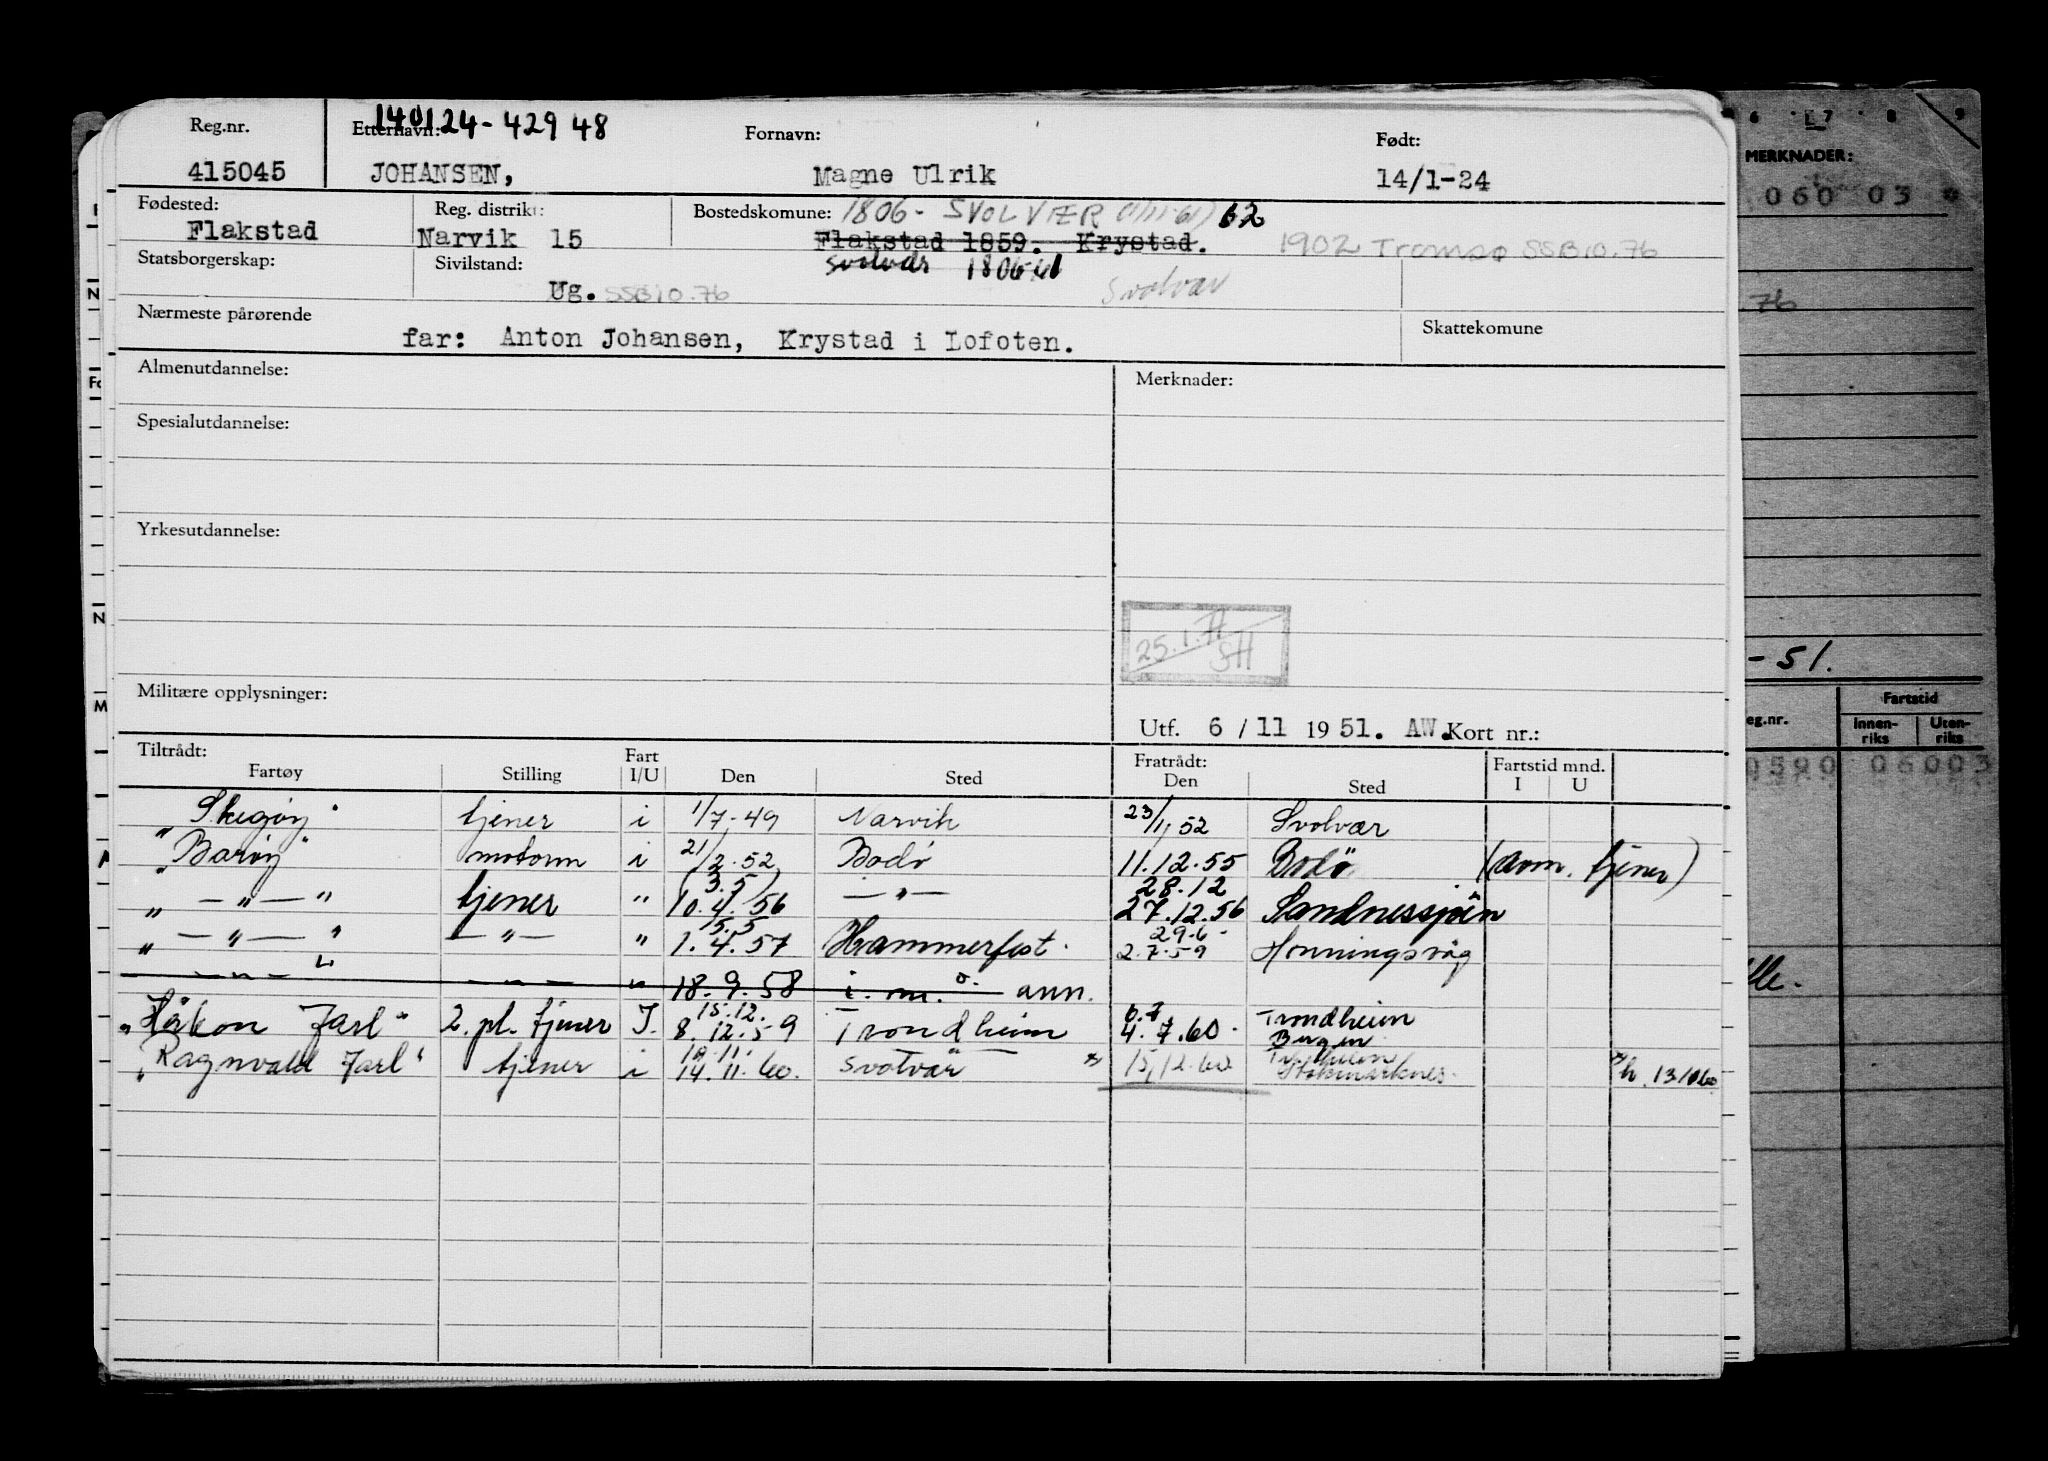 140124-42948
Reg.nr. Etternavn: Fornavn: Født:
415045 JOHANSEN, Magne Ulrik 14/1-24
Fødested: Reg. distrikt: Bostedskomune: 1806- SVOLVÆR 62
Flakstad Narvik 15 Flakstad 1859. Krystad. 1902 Tromsø SSB10.76
Statsborgerskap: Sivilstand: Svolvær 1806
Ug. SSB10.76 Svolvær
Nærmeste pårørende Skattekomune
far: Anton Johansen, Krystad i Lofoten.
Almenutdannelse: Merknader:
Spesialutdannelse:
Yrkesutdannelse:
25.1. SH
Militære opplysninger:
Utf. 6/11 1951. AW. Kort nr.:
Tiltrådt: Fart Fratrådt: Fartstid mnd.
Fartøy Stilling I/U Den Sted Den Sted I U
"Skegøy" tjener i 1/7-49 Narvik 23/1, 52 Svolvær
"Barøy" motorm i 21/2.52 Bodø 11.12.55 Bodø (avm. tjener)
3.5) 28.12
" — " — " tjener " 10.4.56 — " — 27.12.56 Sandnessjøen
15.5 29.6
" — " — " — " — " 1.4.57 Hammerfest. 2.7.59 Honningsvåg
— " — — " — " 18.9.58 i. m. o. ann.
15.12. 6.7 Trondheim
"Håkon Jarl" 2. pl. tjener I. 8.12.59 Trondheim 4.7.60. Bergen
"Ragnvald Jarl" tjener i 14.11.60. Svolvær 15/12.60 Stokmarknes. h. 131060
6 7 8 9
MERKNADER:
060 03
76
-51.
eg.nr. Fartstid
Innen-riks Uten-riks
0590 06003
lle.